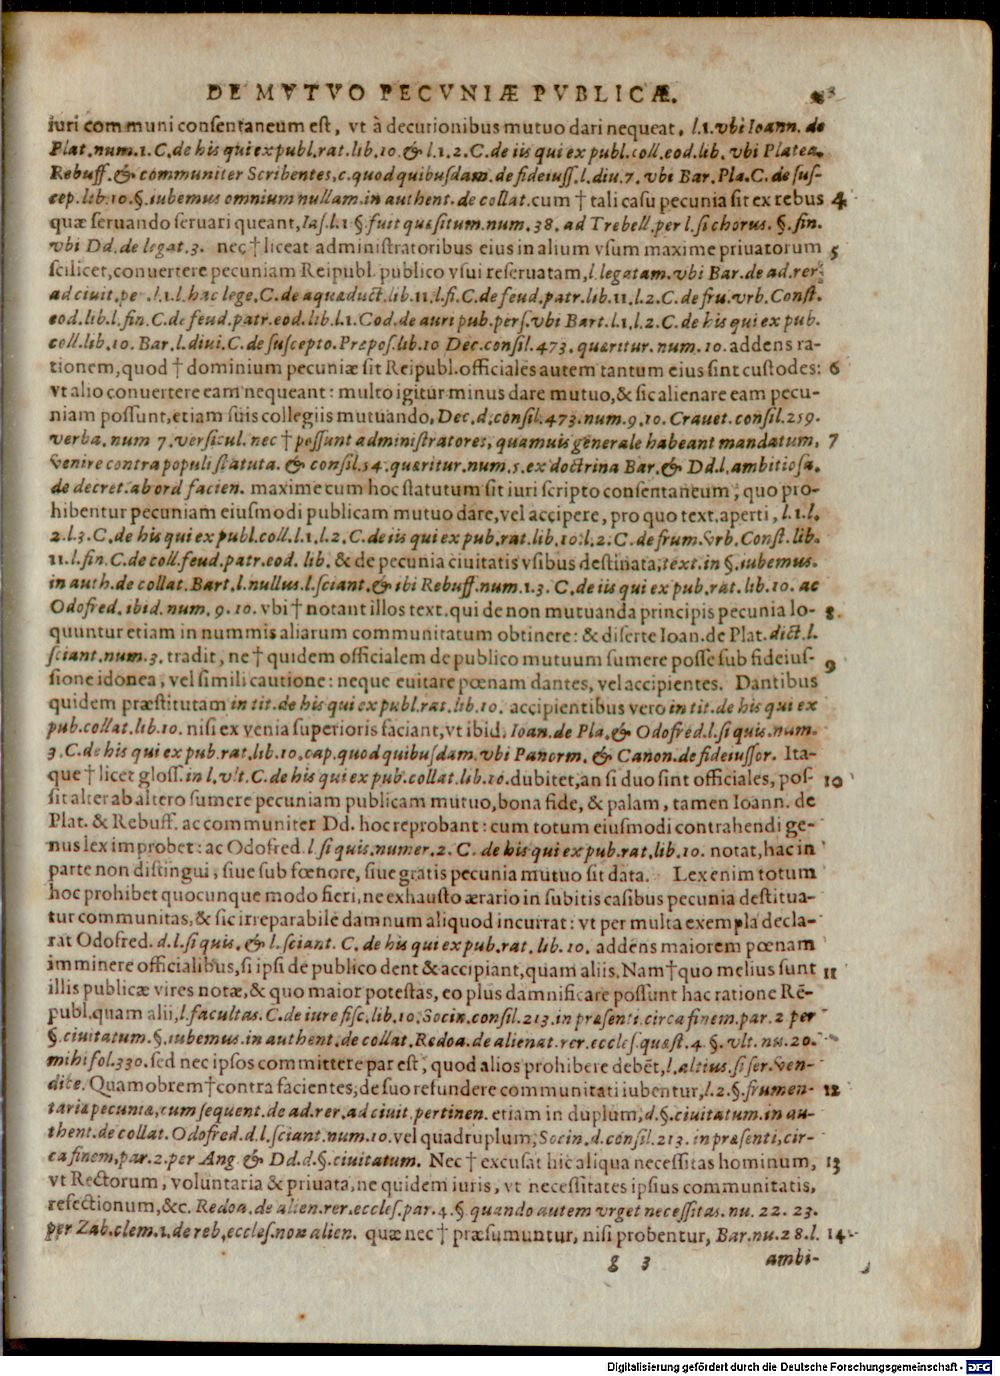 DE MVTVO PECVNIÆ PVBLICÆ.
iuri communi consentaneum est, vt à decurionibus mutuo dari nequeat, l.1. vbi Ioann. de
Plat. num. 1. C. de his qui ex publ. rat. lib. 10. & l. 1. 2. C. de iis qui ex publ. coll. eod. lib. vbi Platea.
Rebuff. & communiter Scribentes, c. quod quibusdam. de fideiuss. l. diu. 7. vbi Bar. Pla. C. de sus-
cep. lib. 10. §. iubemus omnium nullam. in authent. de collat. cum † tali casu pecunia sit ex rebus 4
quæ seruando seruari queant, Ias. l. 1 §. fuit quæsitum. num. 38. ad Trebell. per l. si chorus. §. fin.
vbi Dd. de legat. 3. nec † liceat administratoribus eius in alium vsum maxime priuatorum 5
scilicet, conuertere pecuniam Reipubl. publico vsui reseruatam, l. legatam. vbi Bar. de ad. rer.
ad ciuit. pe . l. 1. l. hac lege. C. de aquæduct. lib. 11. l. fi. C. de feud. patr. lib. 11. l. 2. C. de fru. vrb. Const.
eod. lib. l. fin. C. de feud. patr. eod. lib. l. 1. Cod. de auri pub. pers. vbi Bart. l. 1. l. 2. C. de his qui ex pub.
coll. lib. 10. Bar. l. diui. C. de suscepto. Prepos. lib. 10 Dec. consil. 473. quæritur. num. 10. addens ra-
tionem, quod † dominium pecuniæ sit Reipubl. officiales autem tantum eius sint custodes: 6
vt alio conuertere eam nequeant: multo igitur minus dare mutuo, & sic alienare eam pecu-
niam possunt, etiam suis collegiis mutuando, Dec. d. consil. 473. num. 9. 10. Crauet. consil. 259.
verba. num 7. versicul. nec † possunt administratores, quamuis generale habeant mandatum, 7
venire contra populi statuta. & consil. 54. quæritur. num. 5. ex doctrina Bar. & Dd. l. ambitiosa.
de decret. ab ord facien. maxime cum hoc statutum sit iuri scripto consentaneum, quo pro-
hibentur pecuniam eiusmodi publicam mutuo dare, vel accipere, pro quo text. aperti, l. 1. l.
2. l. 3. C. de his qui ex publ. coll. l. 1. l. 2. C. de iis qui ex pub. rat. lib. 10. l. 2. C. de frum. vrb. Const. lib.
11. l. fin. C. de coll. feud. patr. eod. lib. & de pecunia ciuitatis vsibus destinata, text. in §. iubemus.
in auth. de collat. Bart. l. nullus. l. sciant. & ibi Rebuff. num. 1. 3. C. de iis qui ex pub. rat. lib. 10. ac
Odofred. ibid. num. 9. 10. vbi † notant illos text. qui de non mutuanda principis pecunia lo- 8
quuntur etiam in nummis aliarum communitatum obtinere: & diserte Ioan. de Plat. dict. l.
sciant. num. 3. tradit, ne † quidem officialem de publico mutuum sumere posse sub fideius- 9
sione idonea, vel simili cautione: neque euitare pœnam dantes, vel accipientes. Dantibus
quidem præstitutam in tit. de his qui ex publ. rat. lib. 10. accipientibus vero in tit. de his qui ex
pub. collat. lib. 10. nisi ex venia superioris faciant, vt ibid. Ioan. de Pla. & Odofred. l. si quis. num.
3. C. de his qui ex pub. rat. lib. 10. cap. quod quibusdam. vbi Panorm. & Canon. de fideiussor. Ita-
que † licet gloss. in l. vlt. C. de his qui ex pub. collat. lib. 10. dubitet, an si duo sint officiales, pos- 10
sit alter ab altero sumere pecuniam publicam mutuo, bona fide, & palam, tamen Ioann. de
Plat. & Rebuff. ac communiter Dd. hoc reprobant: cum totum eiusmodi contrahendi ge-
nus lex improbet: ac Odofred. l. si quis. numer. 2. C. de his qui ex pub. rat. lib. 10. notat, hac in
parte non distingui, siue sub fœnore, siue gratis pecunia mutuo sit data. Lex enim totum
hoc prohibet quocunque modo fieri, ne exhausto ærario in subitis casibus pecunia destitua-
tur communitas, & sic irreparabile damnum aliquod incurrat: vt per multa exempla decla-
rat Odofred. d. l. si quis. & l. sciant. C. de his qui ex pub. rat. lib. 10. addens maiorem pœnam
imminere officialibus, si ipsi de publico dent & accipiant, quam aliis. Nam † quo melius sunt 11
illis publicæ vires notæ, & quo maior potestas, eo plus damnificare possunt hac ratione Rē-
publ. quam alii, l. facultas. C. de iure fisc. lib. 10. Socin. consil. 213. in præsenti. circa finem. par. 2 per
§. ciuitatum. §. iubemus. in authent. de collat. Redoa. de alienat. rer. eccles. quæst. 4. §. vlt. nu. 20.
mihi fol. 330. sed nec ipsos committere par est, quod alios prohibere debēt, l. altius. si ser. ven-
dice. Quamobrem † contra facientes, de suo refundere communitati iubentur, l. 2. §. frumen- 12
tariæ pecunia, cum sequent. de ad. rer. ad ciuit. pertinen. etiam in duplum, d. §. ciuitatum. in au-
thent. de collat. Odofred. d. l. sciant. num. 10. vel quadruplum, Socin. d. consil. 213. in præsenti, cir-
ca finem, par. 2. per Ang. & Dd. d. §. ciuitatum. Nec † excusat hic aliqua necessitas hominum, 13
vt Rectorum, voluntaria & priuata, ne quidem iuris, vt necessitates ipsius communitatis,
refectionum, &c. Redoa. de alien. rer. eccles. par. 4. § quando autem vrget necessitas. nu. 22. 23.
per Zab. clem. 1. de reb. eccles. non alien. quæ nec † præsumuntur, nisi probentur, Bar. nu. 28. l. 14
g 3 ambi-
Digitalisierung gefördert durch die Deutsche Forschungsgemeinschaft - DFG